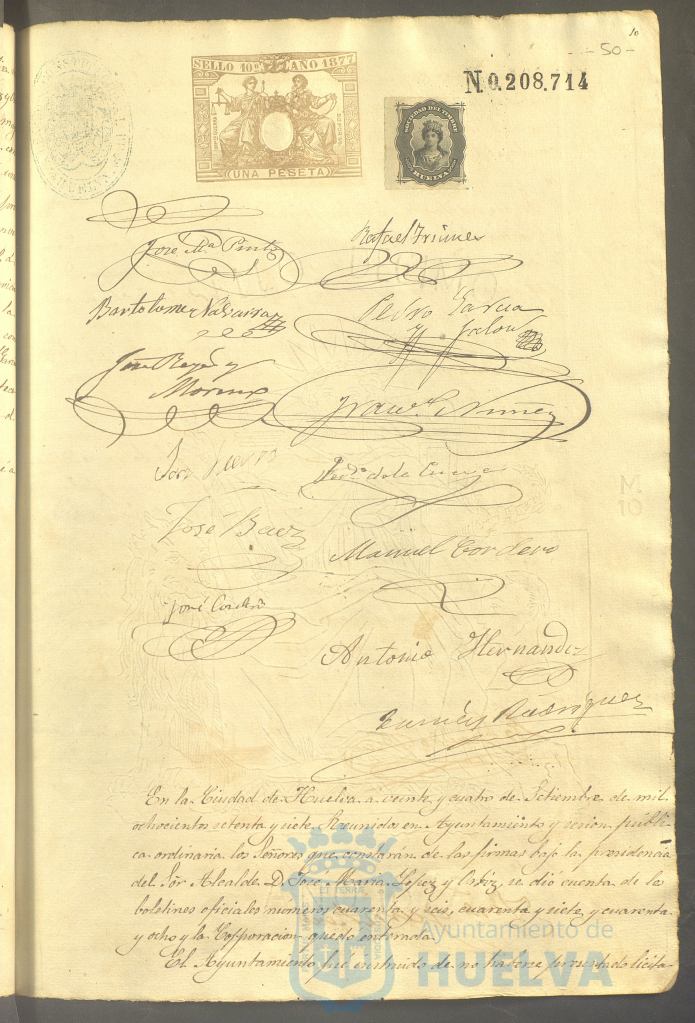 10
- 50 -
SELLO 10º AÑO 1877
UNA PESETA
N.0.208.714
SOCIEDAD DEL TIMBRE
HUELVA
José Mª Pinto
Rafael
Bartolome
Pedro Garcia
Jalon
José Reyes y
Moreno
Franco Nuñez
José
de la Cueva
José Baez
Manuel Cordero
José Cordero
Antonio Hernandez
Rodriguez
M.
10
En la Ciudad de Huelva a veinte y cuatro de Setiembre de mil
ochocientos setenta y siete Reunidos en Ayuntamiento y sesion publi-
ca ordinaria los Señores que constaran de las firmas bajo la presidencia
del Sor Alcalde D. José Maria Lopez y Ortiz, se dió cuenta de los
boletines oficiales numeros cuarenta y seis, cuarenta y siete y cuarenta
y ocho y la Corporacion quedo enterada.
El Ayuntamiento fué instruido de no haberse presentado licita-
Ayuntamiento de
HUELVA